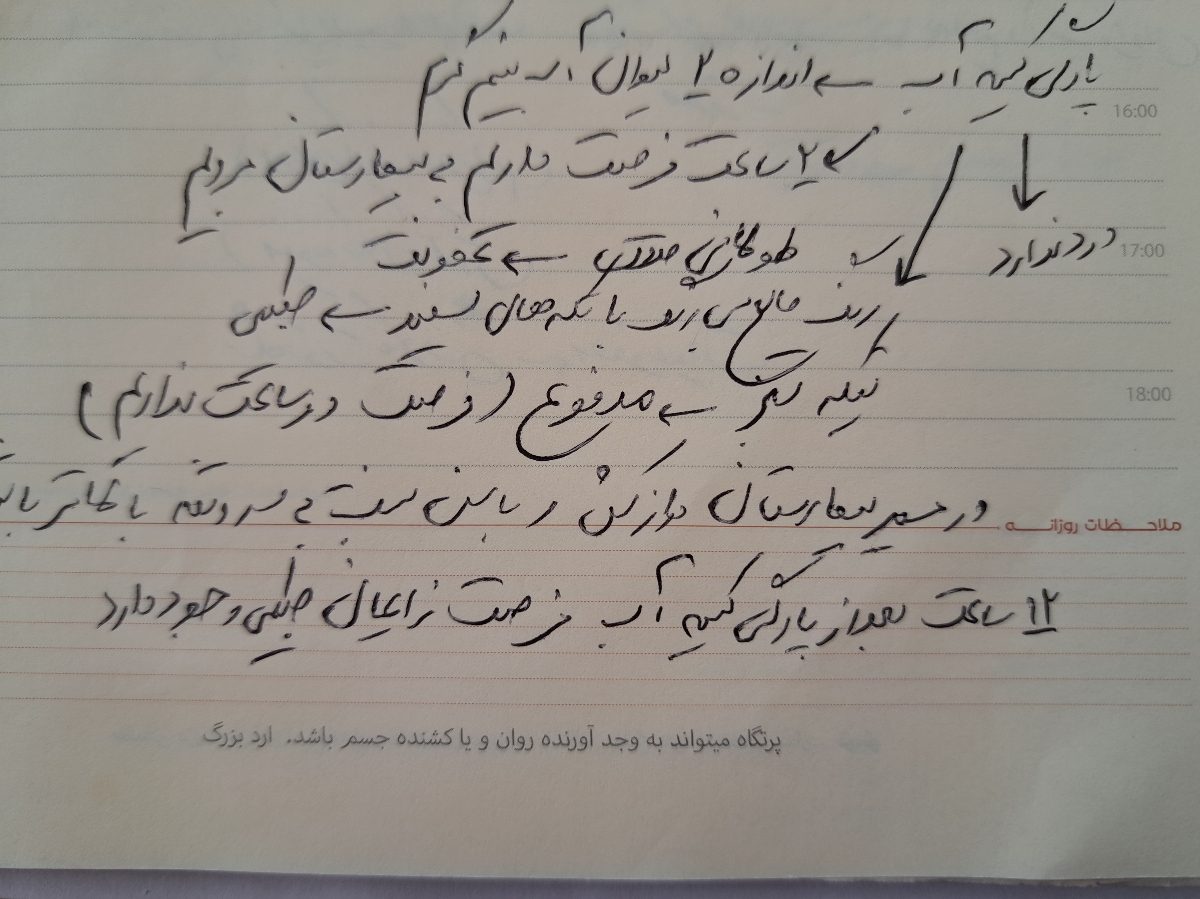 پارگی کیسه آب ← اندازه ۲ لیوان آب نیم گرم
16:00
← ۲ ساعت فرصت داریم به بیمارستان برویم
درد ندارد
17:00
طولانی ← عفونت
رنگ مایع می‌ریزد با تکه‌های سفید ← طبیعی
تیکه سبز ← مدفوع (فرصت دو ساعت نداریم)
18:00
در مسیر بیمارستان دراز کش و باسن سمت به
ملاحظات روزانه
۱۲ ساعت بعد از پارگی کیسه آب فرصت زایمان طبیعی وجود دارد
پرتگاه میتواند به وجد آورنده روان و یا کشنده جسم باشد. ارد بزرگ